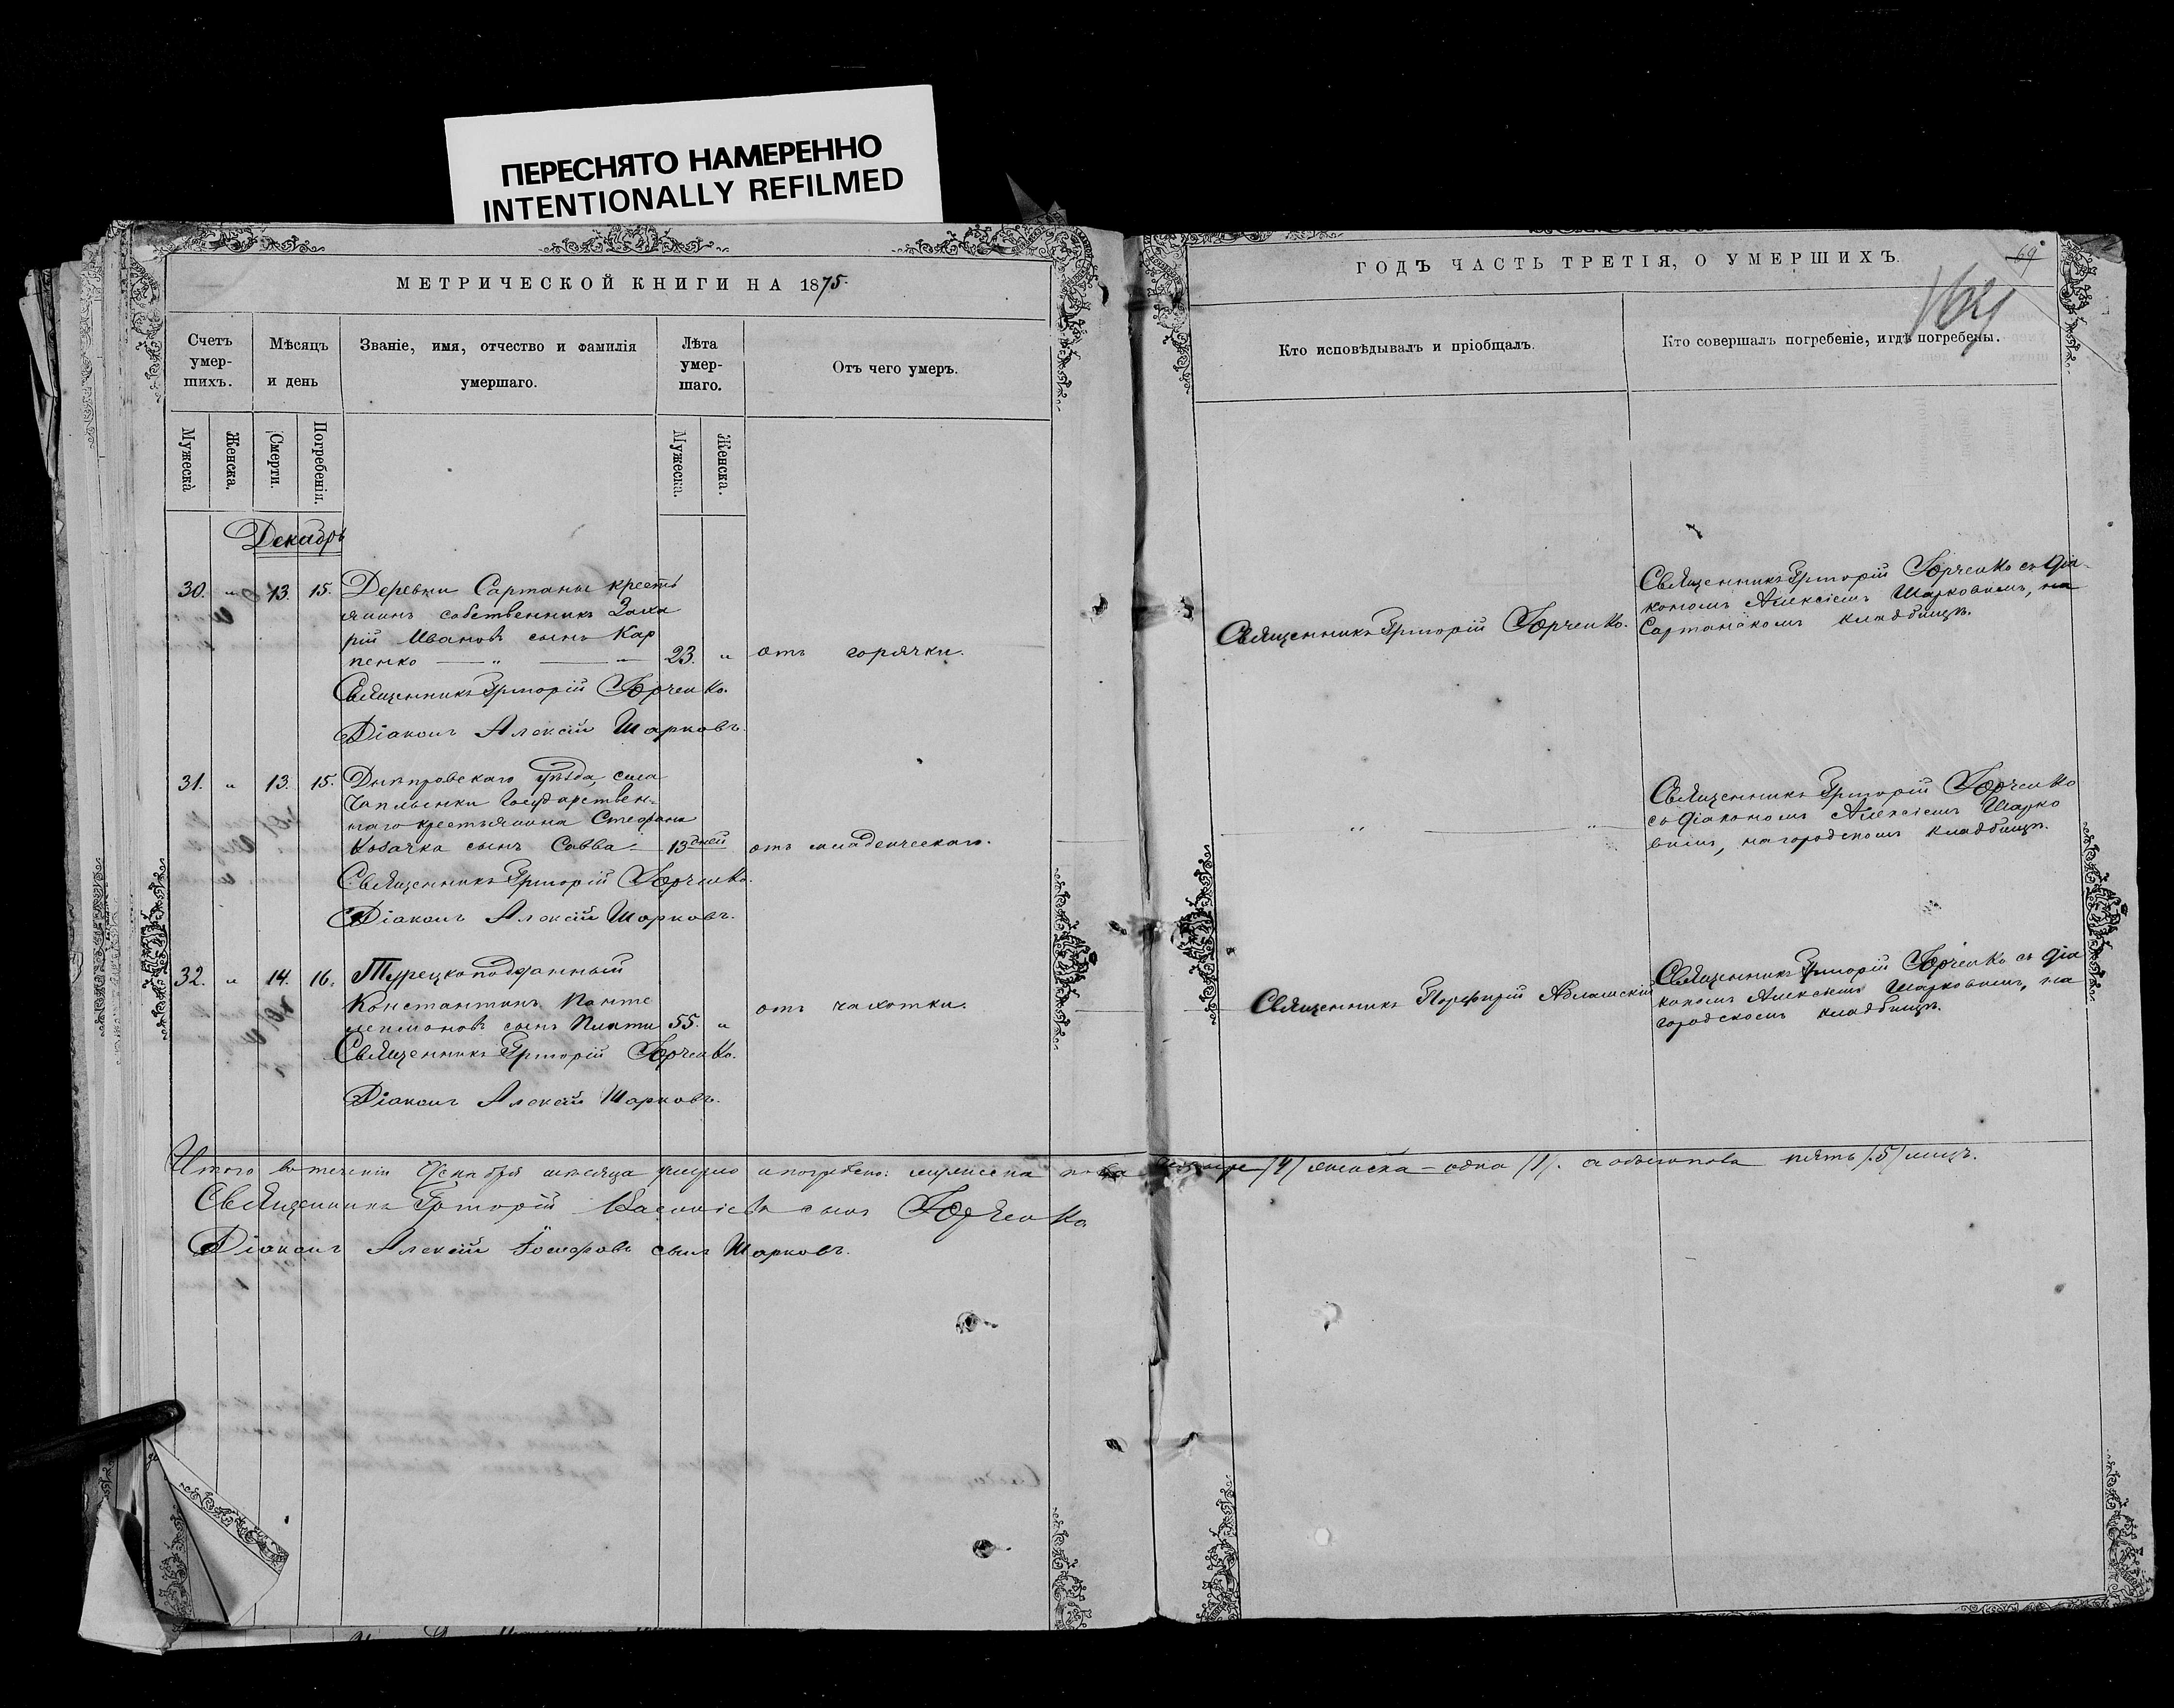 ПЕРЕСНЯТО НАМЕРЕННО
INTENTIONALLY REFILMED
МЕТРИЧЕСКОЙ КНИГИ НА 1875.
Счетъ умер-шихъ.
Мѣсяцъ и день
Званіе, имя, отчество и фамилія умершаго.
Лѣта умер-шаго.
Отъ чего умеръ.
Мужеска
Женска.
Смерти.
Погребенія.
Мужеска.
Женска.
Декабрь
30. " 13. 15. Деревни Сартаны кресть
янинъ собственникъ Заха
рій Ивановъ сынъ Кар
пенко — " — " 23. " отъ горячки.
Священникъ Григорій Юрченко.
Діаконъ Алексій Шарковъ.
31. " 13. 15. Днѣпровскаго уѣзда, села
Чапленки Государствен-
наго крестьянина Стефана
Козачка сынъ Савва — 13 дней отъ младенческаго.
Священникъ Григорій Юрченко.
Діаконъ Алексій Шарковъ.
32. " 14. 16. Турецкоподданный
Константинъ Панте
лемоновъ сынъ 55. " отъ чахотки.
Священникъ Григорій Юрченко.
Діаконъ Алексій Шарковъ.
Итого въ теченіи Декабря мѣсяца умерло и погребено: мужеска пола четыре /4/ женска — одна /1/. а обоего пола пять /5/ лицъ.
Священникъ Григорій Василіевъ сынъ Юрченко
Діаконъ Алексій Іосифовъ сынъ Шарковъ.
ГОДЪ ЧАСТЬ ТРЕТІЯ, О УМЕРШИХЪ.
69
Кто исповѣдывалъ и пріобщалъ.
Кто совершалъ погребеніе, и гдѣ погребены.
Священникъ Григорій Юрченко.
Священникъ Григорій Юрченко съ діа-
кономъ Алексіемъ Шарковымъ, на
Сартанскомъ кладбищѣ.
" — "
Священникъ Григорій Юрченко
съ діакономъ Алексіемъ Шарко
вымъ, на городскомъ кладбищѣ.
Священникъ Порфирій
Священникъ Григорій Юрченко съ діа
кономъ Алексіемъ Шарковымъ, на
городскомъ кладбищѣ.